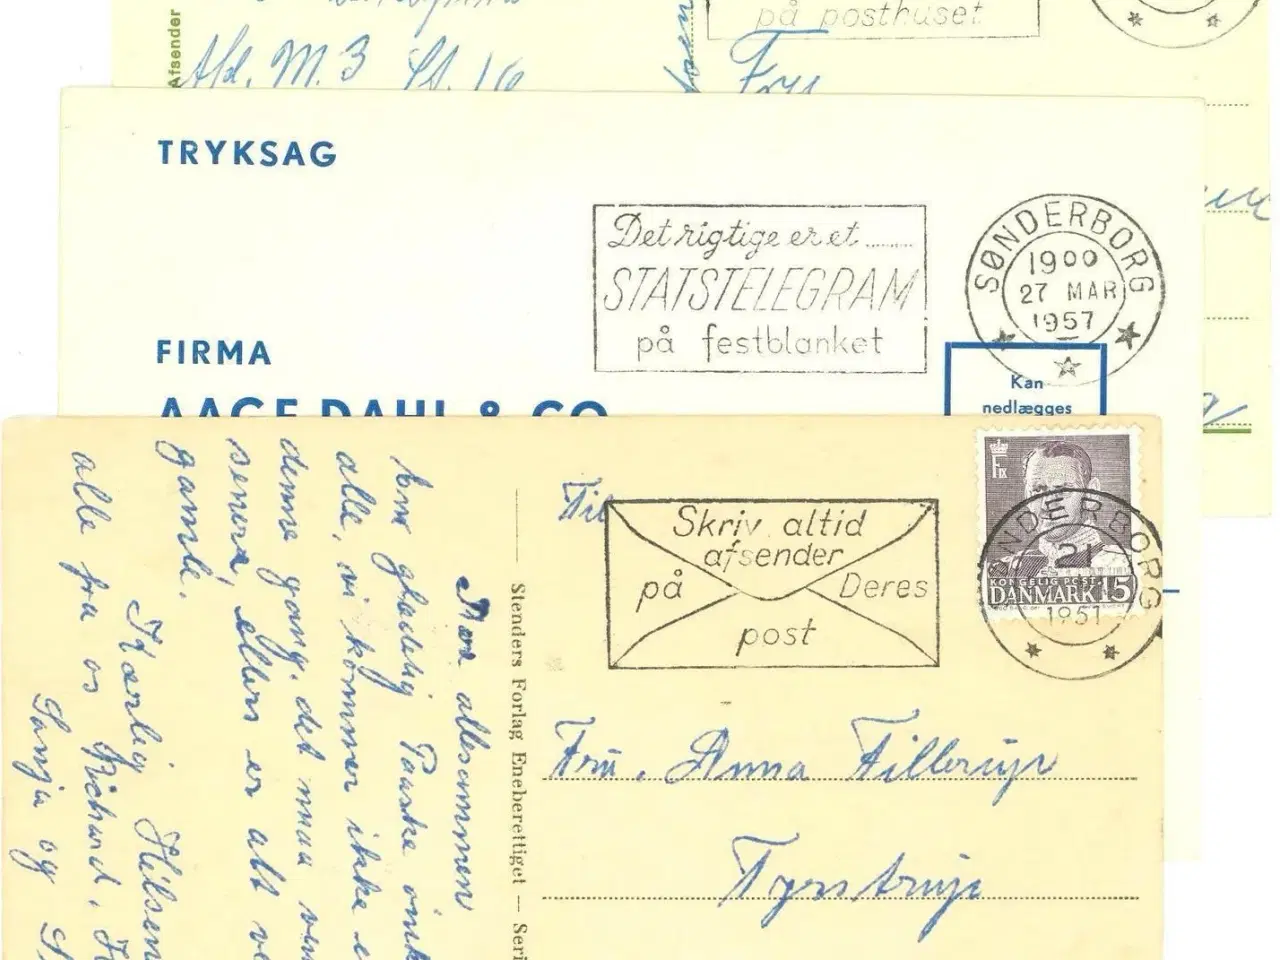 på posthuset
Afsender
Afd. M. 3 St. 16
Fru
TRYKSAG
Det rigtige er et ........
STATSTELEGRAM
på festblanket
SØNDERBORG
19 00
27 MAR
1957
FIRMA
AAGE DAHL & CO
Kan
nedlægges
Til
Skriv altid
afsender
på Deres
post
F IX
KONGELIG POST
DANMARK 15
SØNDERBORG
21
1951
Fru. Anna Tillerup
Tyrstrup
Stenders Forlag Eneberettiget — Seri
allesammen
glædelig Paaske
alle, vi kommer ikke
denne gang, det maa
senere, ellers er alt
gamle.
Kærlig Hilsen
alle fra os Richard,
Sonja og